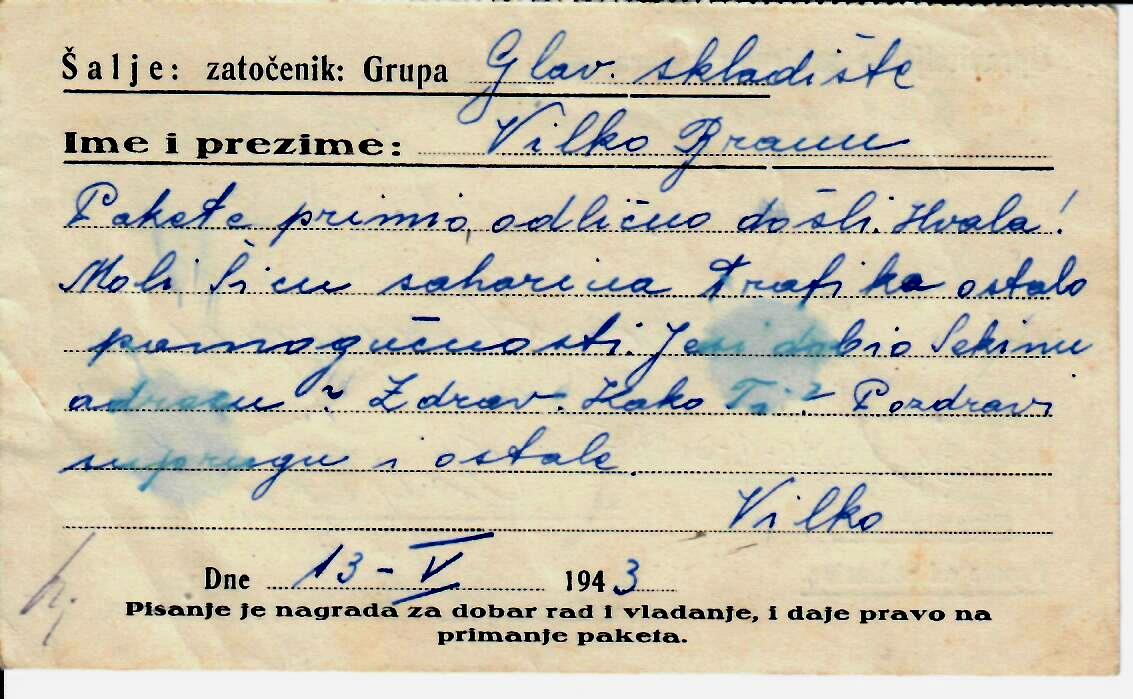 Šalje: zatočenik: Grupa Glav. skladište
Ime i prezime: Vilko Braun
Pakete primio, odlično došli. Hvala!
Moli Šicu saharina trafika ostalo
po mogućnosti. Jesi dobio Sekinu
adresu? Zdrav. Kako Ti? Pozdravi
suprugu i ostale.
Vilko
Dne 13-V 1943
Pisanje je nagrada za dobar rad i vladanje, i daje pravo na
primanje paketa.